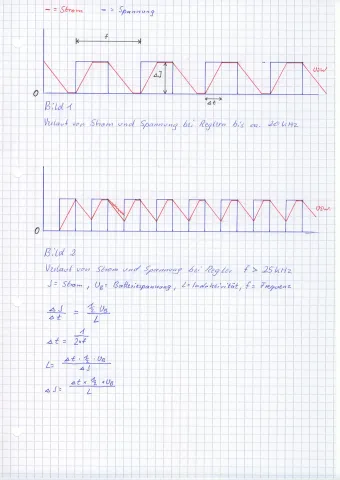 — = Strom — = Spannung
f
ΔJ
Δt
usw
0
Bild 1
Verlauf von Strom und Spannung bei Reglern bis ca. 20 kHz
usw
0
Bild 2
Verlauf von Strom und Spannung bei Regler f > 25 kHz
J = Strom, UB = Batteriespannung, L = Induktivität, f = Frequenz
ΔJ / Δt = ½ UB / L
Δt = 1 / 2*f
L = Δt · ½ · UB / ΔJ
ΔJ = Δt * ½ * UB / L